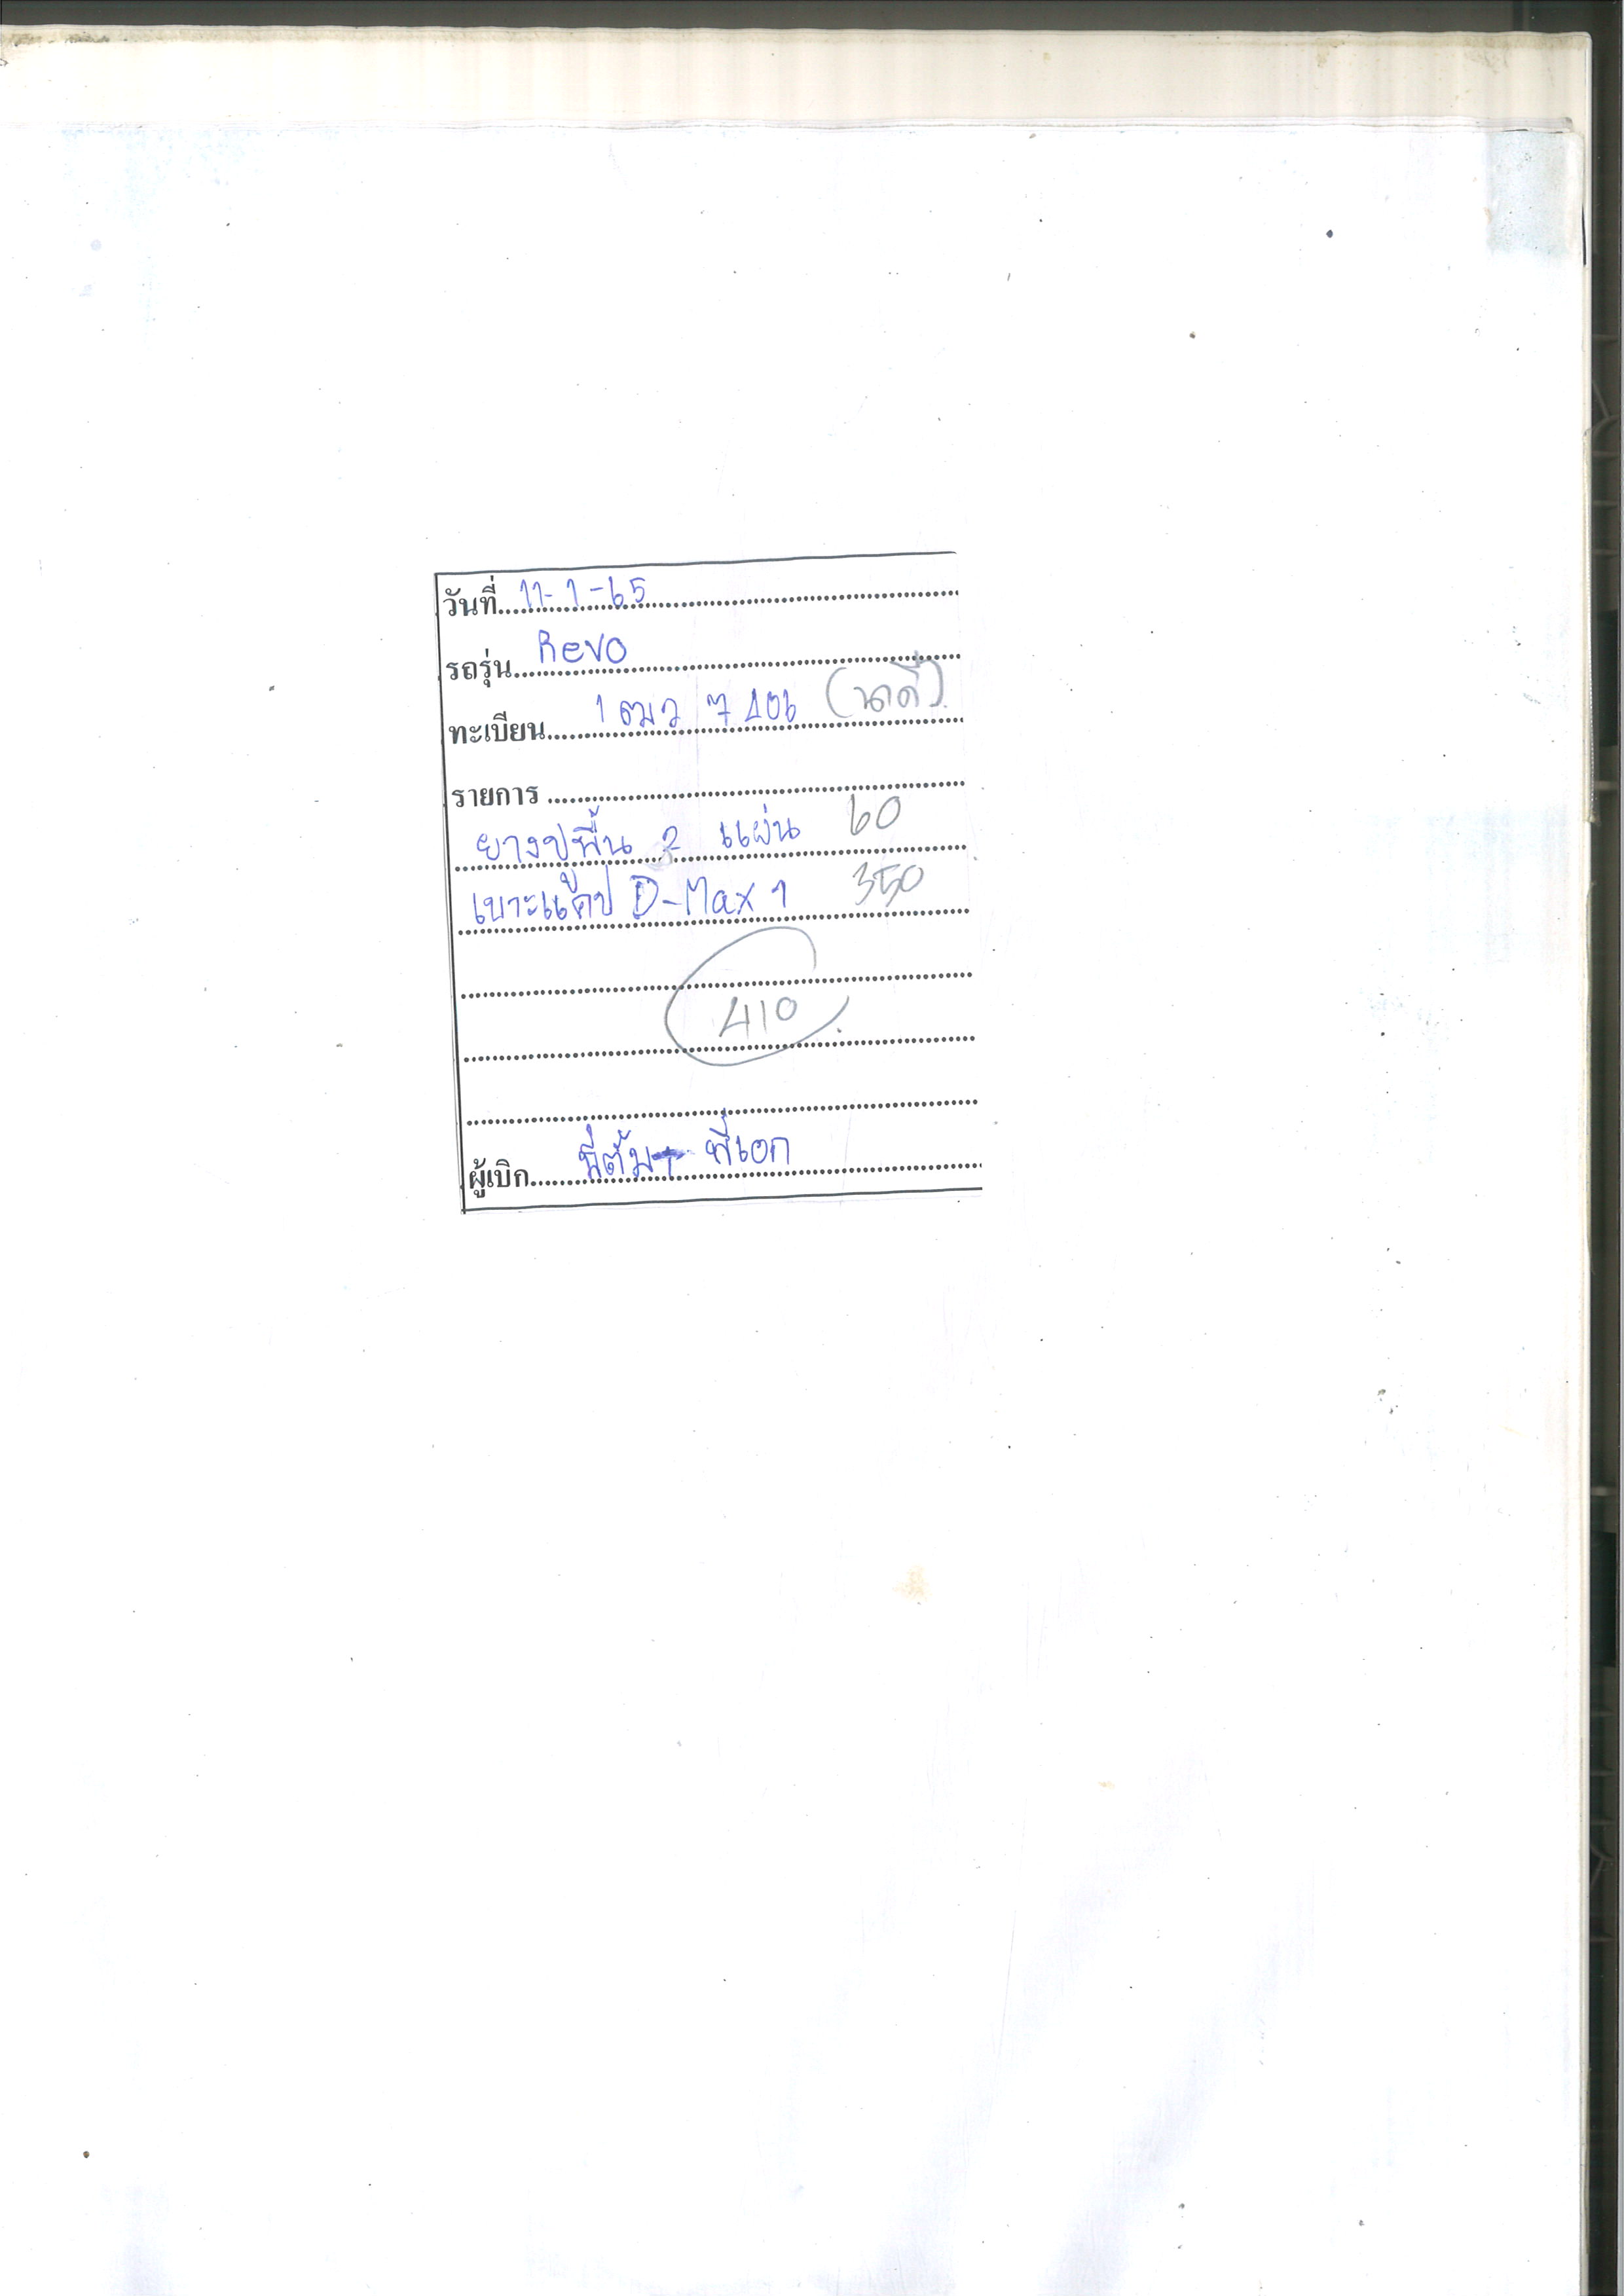 วันที่ 11-1-65
รถรุ่น Revo
ทะเบียน 1ฒว 7406
รายการ
ยางปูพื้น 2 แผ่น 60
เบาะแค๊ป D-Max 1 350
410
ผู้เบิก พี่ตั้ม + พี่เอก